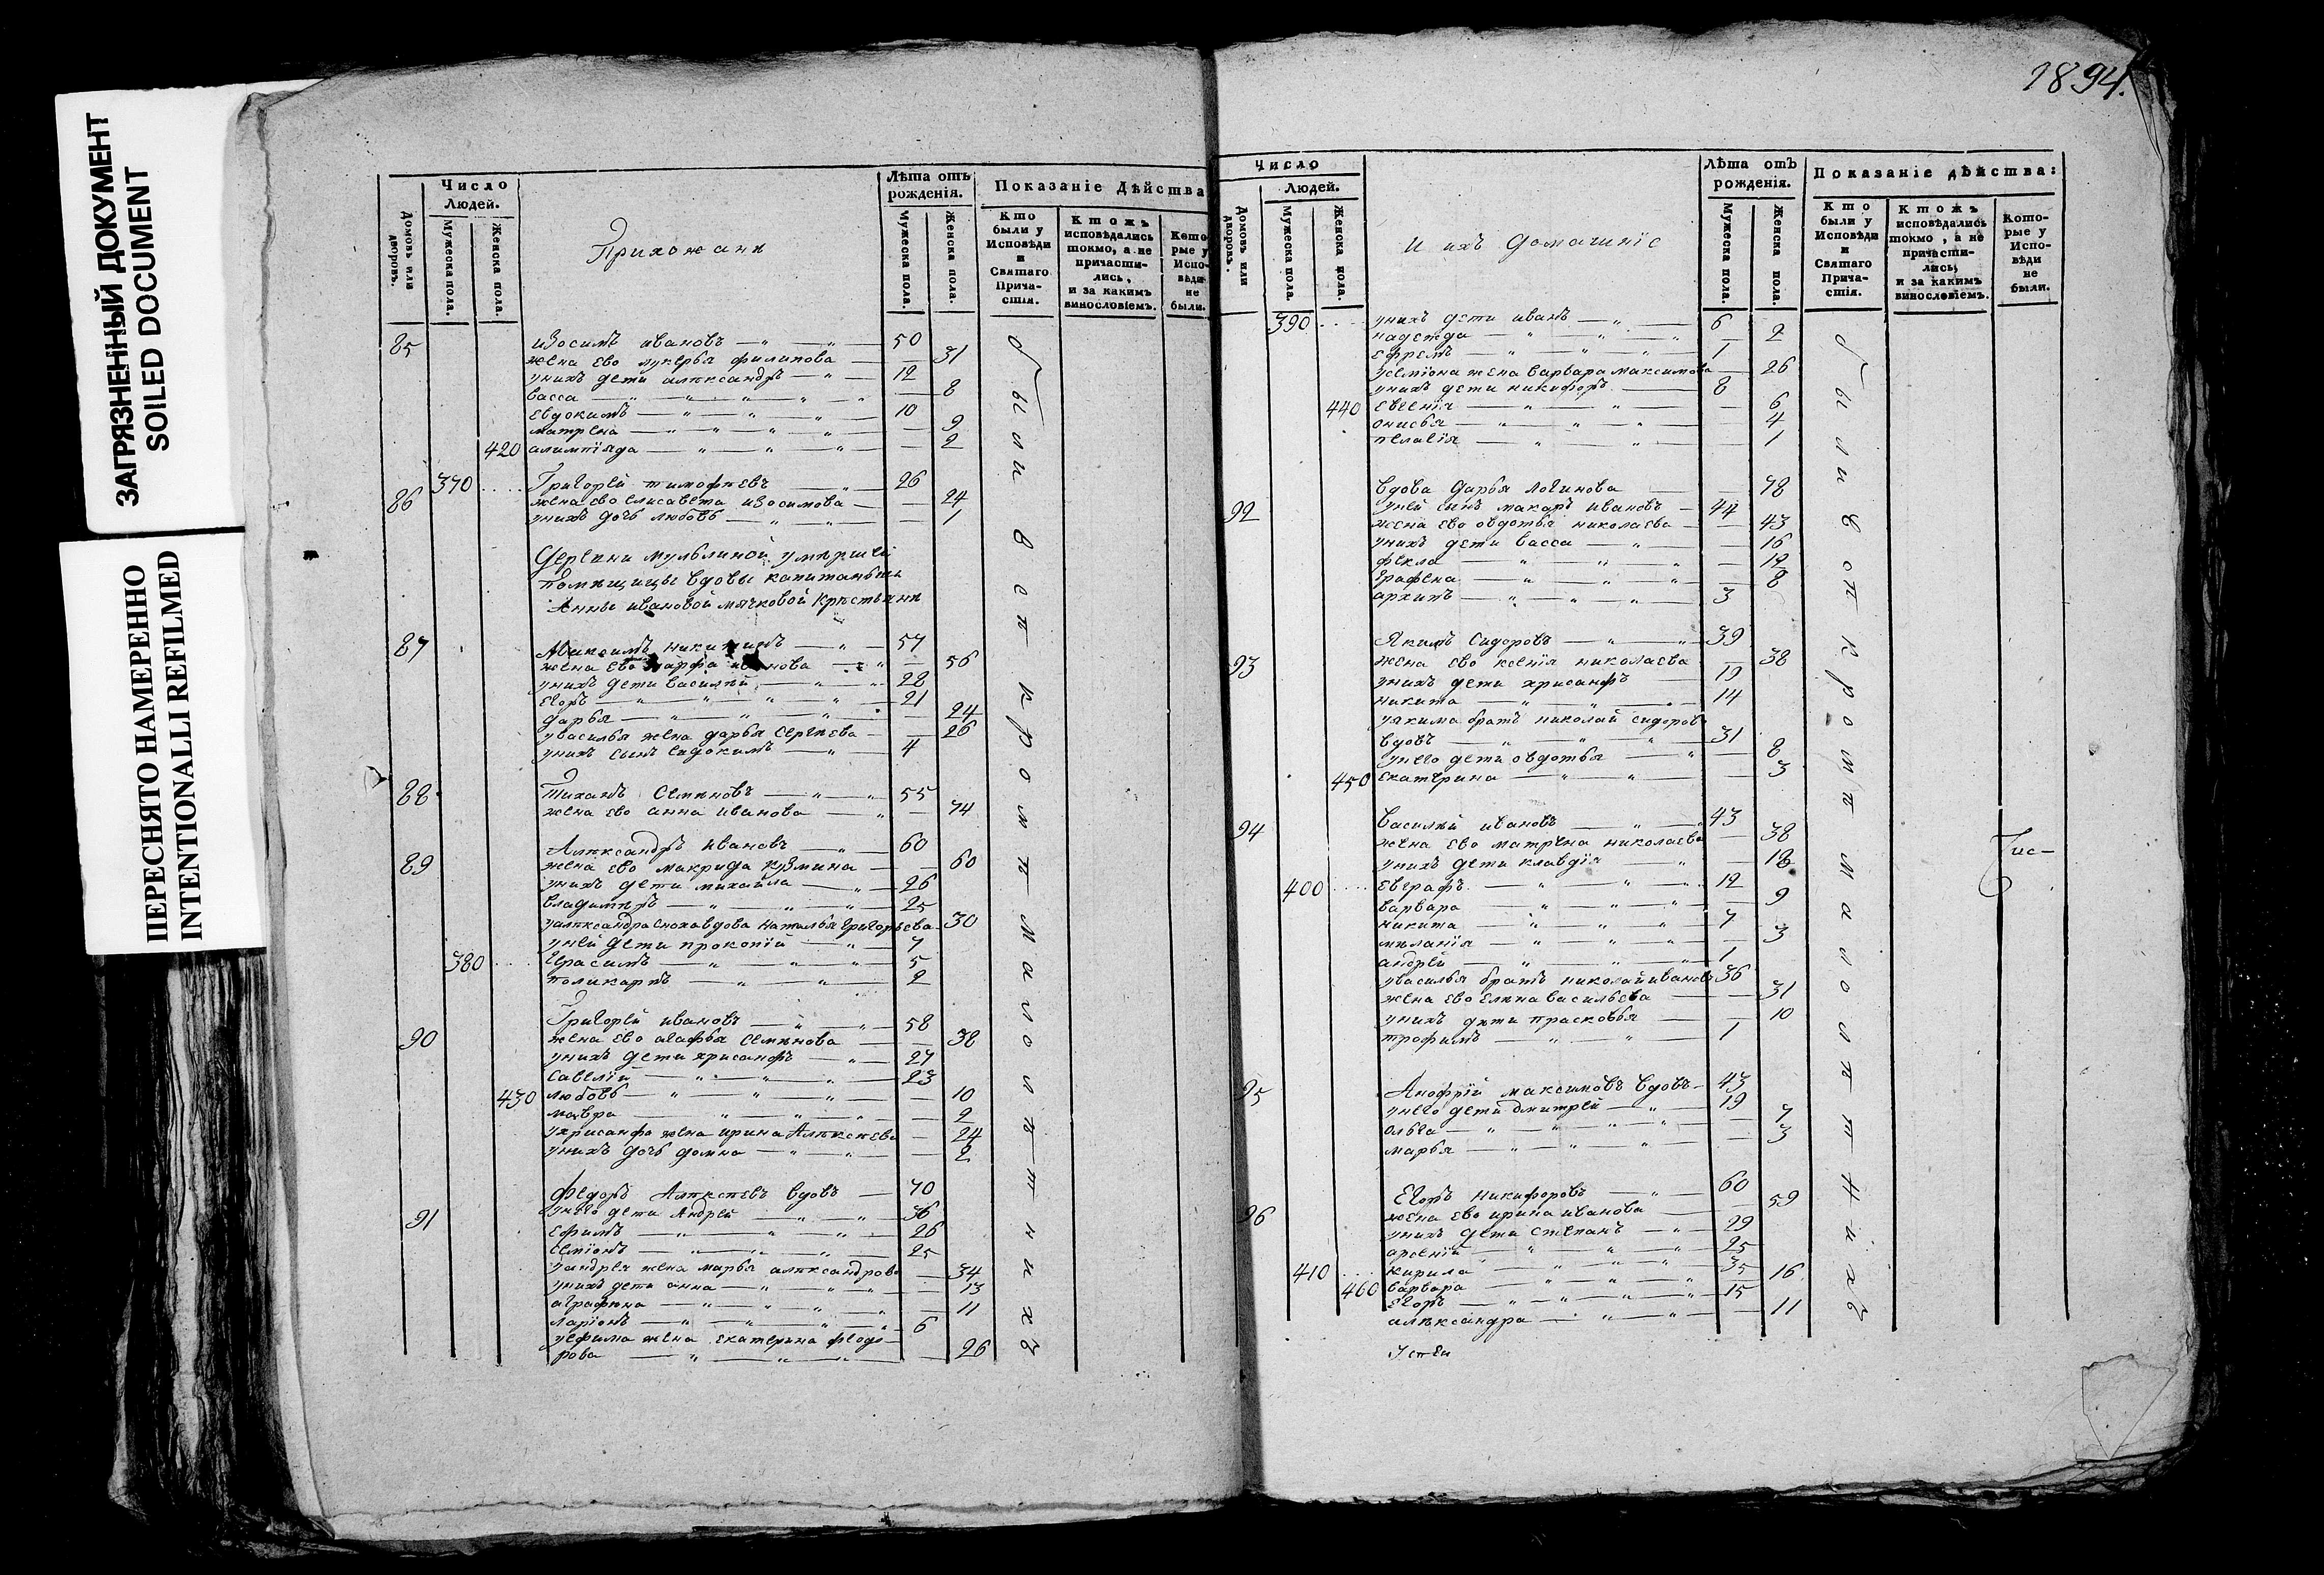 ЗАГРЯЗНЕННЫЙ ДОКУМЕНТ
SOILED DOCUMENT
ПЕРЕСНЯТО НАМЕРЕННО
INTENTIONALLI REFILMED
Число Людей. Лѣта отъ рожденія. Показаніе Дѣйства
Домовъ или дворовъ.
Мужеска пола.
Женска пола.
Прихожанѣ
Мужеска пола.
Женска пола.
Кто были у Исповѣди и Святаго Причастія.
Ктожъ исповѣдались токмо, а не причастились, и за какимъ винословіемъ.
Которые у Исповѣди не были.
85 изосимъ ивановъ — „ — „ — 50
жена ево лукерья филипова — 31
унихъ дети алѣксандръ — „ — 12
васса — „ — „ — „ — „ — 8
евдокимъ — „ — „ — „ — 10
матрена — „ — „ — „ — 9
420 алимпіяда — „ — „ — „ — 2
86 370 Григорей тимофѣевъ — „ — 26
жена ево елисавета изосимова — 24
унихъ дочь любовь — „ — „ — 1
Деревни мульлиной умѣршей
Помѣщицы вдовы капитаньши
Анны ивановой мячковой крѣстьянѣ
87 Максимъ никитинъ — „ — 57
жена ево марфа ивановa — 56
унихъ дети василѣй — „ — 28
егоръ — „ — „ — „ — „ — 21
дарья — „ — „ — „ — 24
увасилья жена дарья сергѣева — 26
унихъ сынъ евдокимъ — „ — 4
88 Тиханъ Семѣновъ — „ — „ 55
жена ево анна иванова — „ — 74
89 Алѣксандръ ивановъ — „ — 60
жена ево макрида кузмина — 60
унихъ дети михайла — „ — 26
владимѣръ — „ — „ — „ — 25
уалѣксандра сноха вдова наталья григорьева 30
уней дети прокопій — „ — 7
380 герасимъ — „ — „ — „ — 5
поликарпъ — „ — „ — 2
90 Григорей ивановъ — „ — „ — 58
жена ево агафья семѣнова — 38
унихъ дети хрисанфъ — „ — 27
савелій — „ — „ — „ — 23
430 любовь — „ — „ — „ — 10
мавра — „ — „ — „ — 2
ухрисанфа жена ирина Алѣксѣева — 24
унихъ дочь домна — „ — „ — 2
91 Федоръ Алѣксѣевъ вдовъ — 70
унего дети Андрей — „ — „ — 36
ефимъ — „ — „ — „ — 26
семіонъ — „ — „ — „ — 25
уандрея жена марья алѣксандрова — 34
унихъ дети анна — „ — „ — 13
аграфѣна — „ — „ — „ — „ — 11
ларіонъ — „ — „ — „ — „ — 6
уефима жена екатерина федо-
рова — „ — „ — „ — 26
были в с п кромѣ малолѣтнихъ
1894.
Число Людей. Лѣта отъ рожденія. Показаніе дѣйства:
Домовъ или дворовъ.
Мужеска пола.
Женска пола.
и ихъ домашніе
Мужеска пола.
Женска пола.
Кто были у Исповѣди и Святаго Причастія.
Ктожъ исповѣдались токмо, а не причастились, и за какимъ винословіемъ.
Которые у Исповѣди не были.
390 унихъ дети иванъ — „ — 6
надежда — „ — „ — „ 2
ефремъ — „ — „ — „ — 1
усеміона жена варвара максимова — 26
унихъ дети никифоръ — 8
440 евгенія — „ — „ — 6
онисья — „ — „ — „ — 4
пелагія — „ — „ — 1
Вдова дарья логинова — 78
92 уней сынъ макаръ ивановъ — 44
жена ево овдотья николаева — 43
унихъ дети васса — „ — 16
фекла — „ — „ — „ — 12
графена — „ — „ — „ — 8
архипъ — „ — „ — „ — 3
Якимъ Сидоровъ — „ — „ — 39
93 жена ево ксенія николаева — 38
унихъ дети хрисанфъ — 19
никита — „ — „ — „ — 14
уякима братъ николай сидоровъ
вдовъ — „ — „ — „ — 31
унего дети овдотья — „ — 8
450 екатерина — „ — „ — 3
94 Василѣй ивановъ — „ — „ 43
жена ево матрена николаева — 38
унихъ дети клавдія — „ — 18
400 евграфъ — „ — „ — „ 12
варвара — „ — „ — „ — 9
никита — „ — „ — „ — 7
мѣланія — „ — „ — „ — 3
андрей — „ — „ — „ — 1
увасилья братъ николай ивановъ 36
жена ево елѣна васильева — 31
унихъ дѣти прасковья — 10
трофимъ — „ — „ — „ — 1
95 Анофрій максимовъ вдовъ — 43
унего дети дмитрей — „ — 19
ольга — „ — „ — „ — „ — 7
марья — „ — „ — „ — „ — 3
Егоръ никифоровъ — „ — 60
96 жена ево ирина иванова — 59
унихъ дети степанъ — „ — 29
арсеній — „ — „ — „ — 25
410 кирила — „ — „ — „ — 35
460 варвара — „ — „ — „ — 16
егоръ — „ — „ — „ — „ — 15
алѣксандра — „ — „ — 11
были в с п кромѣ малолѣтнихъ